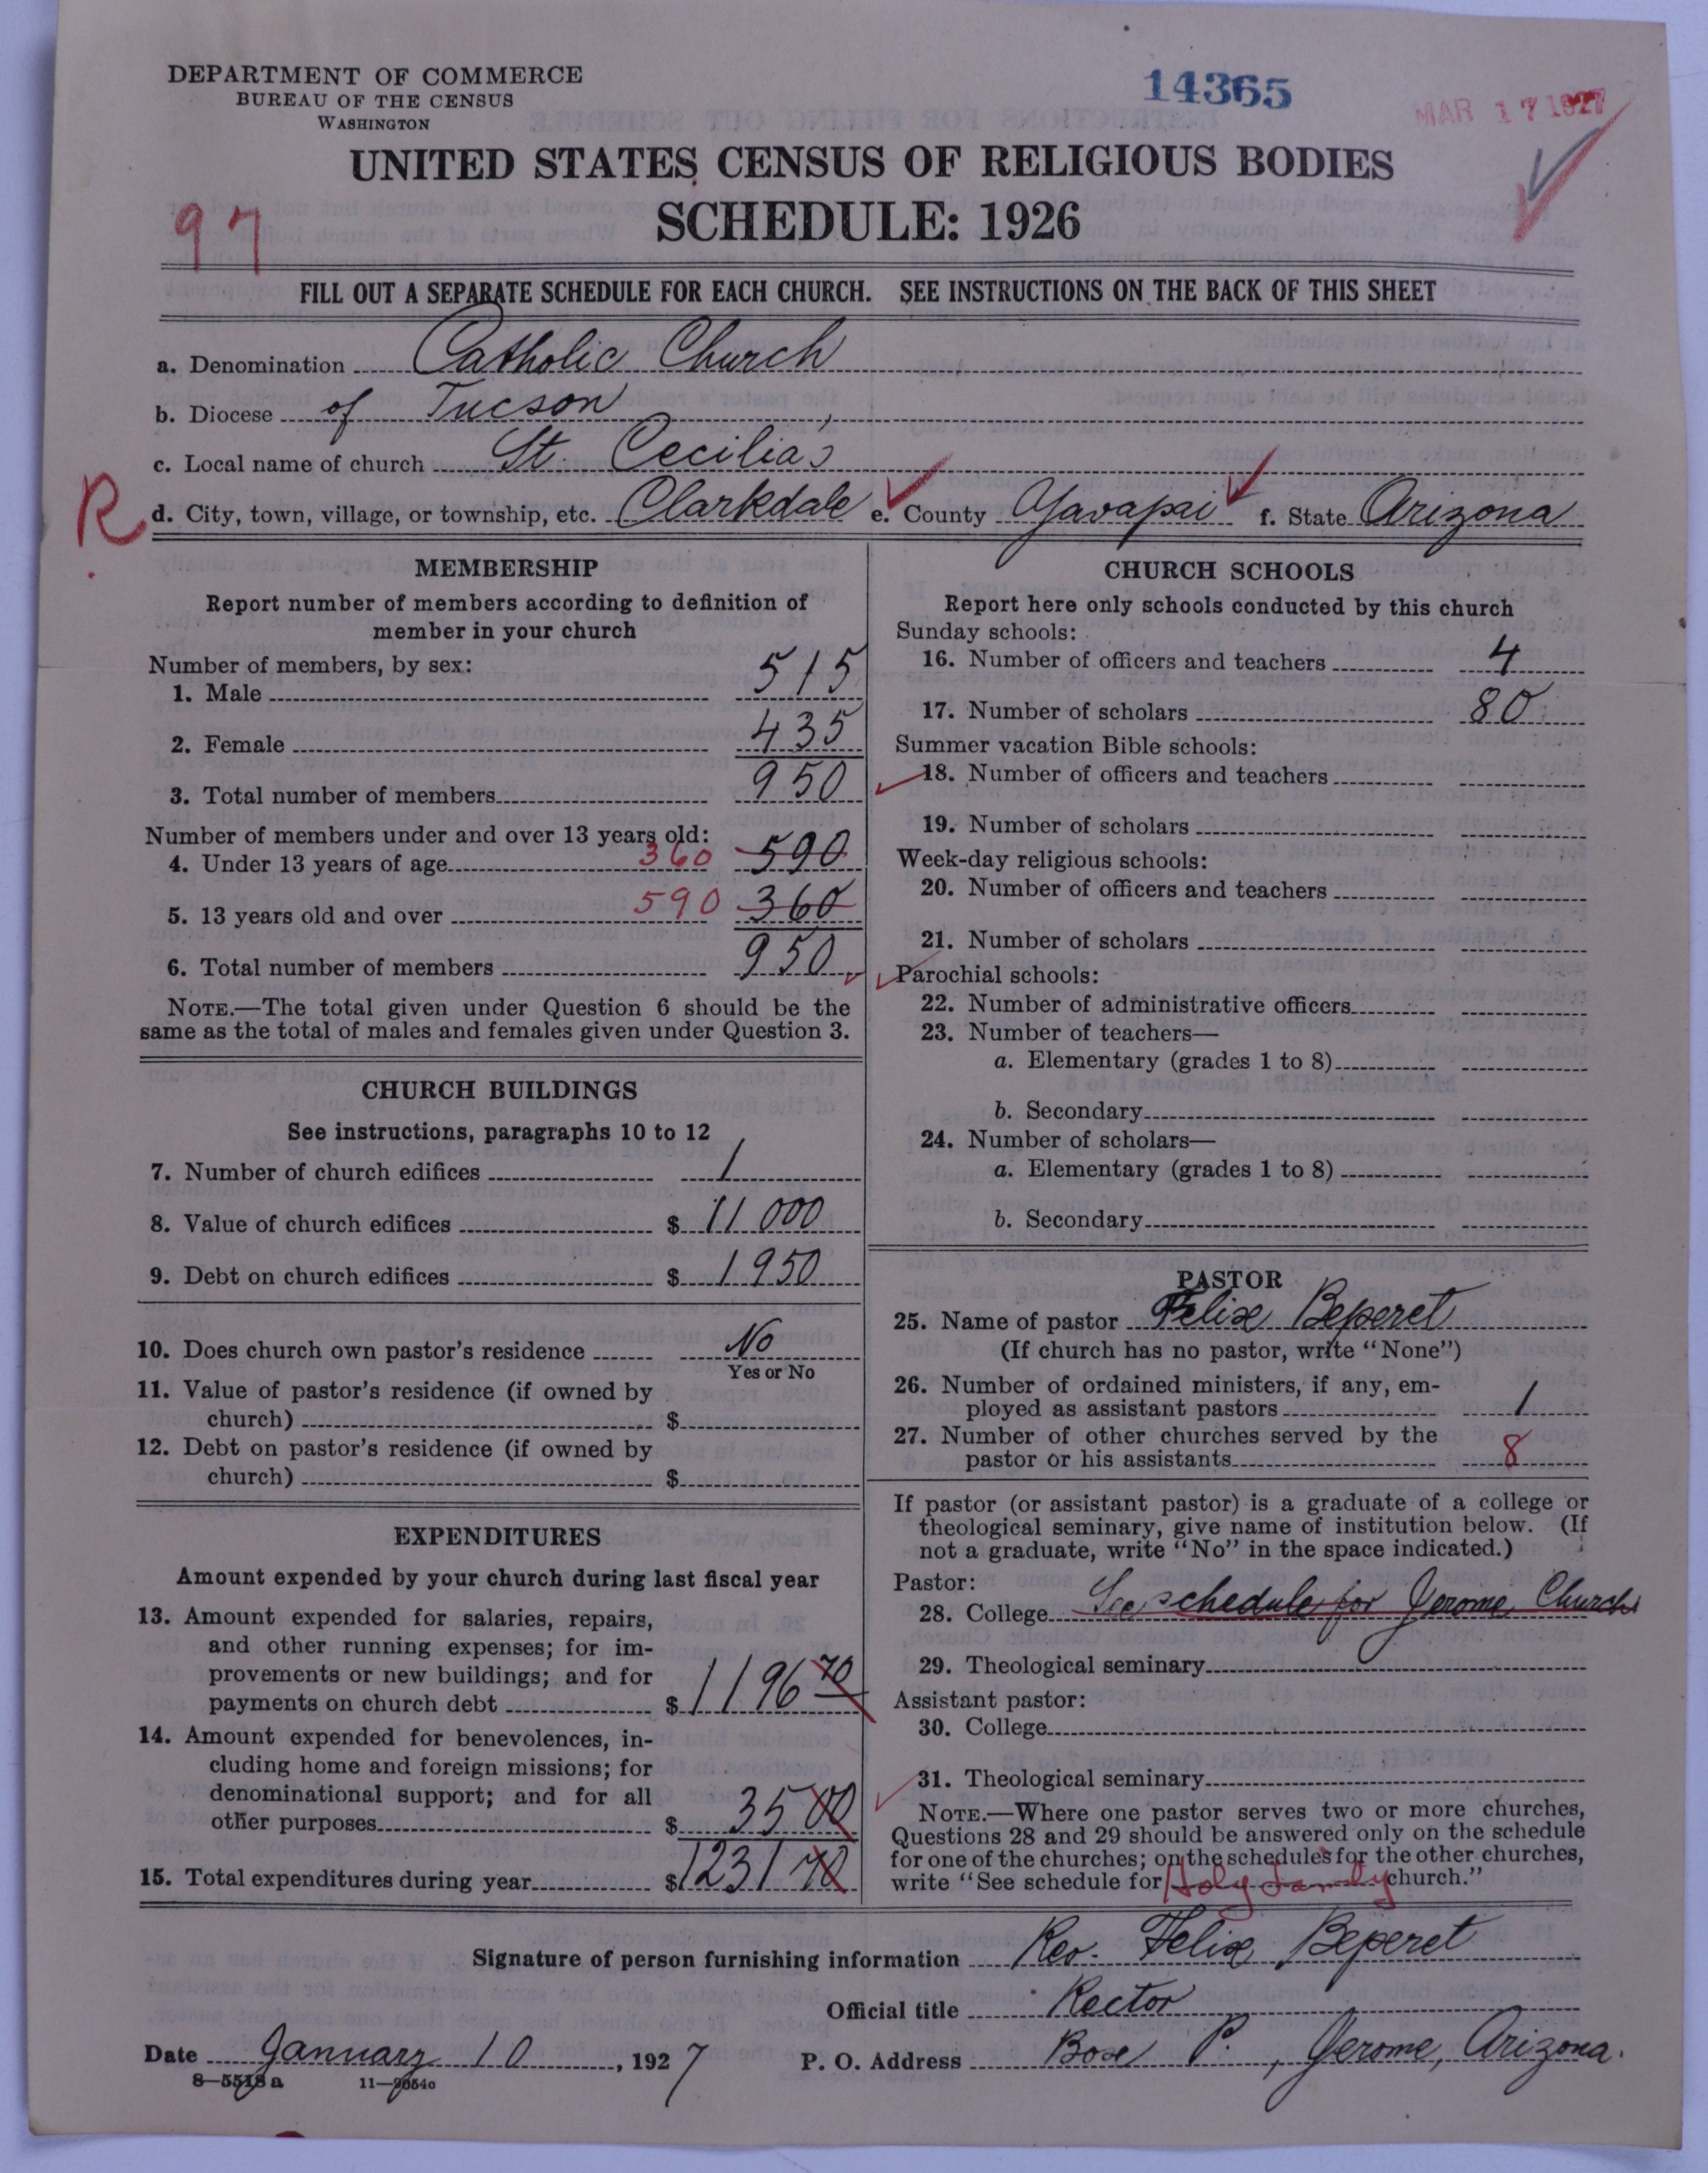 DEPARTMENT OF COMMERCE
BUREAU OF THE CENSUS
WASHINGTON
14365
MAR 17 1927
UNITED STATES CENSUS OF RELIGIOUS BODIES
SCHEDULE: 1926
97
FILL OUT A SEPARATE SCHEDULE FOR EACH CHURCH. SEE INSTRUCTIONS ON THE BACK OF THIS SHEET
a. Denomination Catholic Church
b. Diocese of Tucson,
c. Local name of church St. Cecilia's
R
d. City, town, village, or township, etc. Clarkdale e. County Yavapai f. State Arizona
MEMBERSHIP
Report number of members according to definition of
member in your church
Number of members, by sex:
1. Male 515
2. Female 435
3. Total number of members 950
Number of members under and over 13 years old:
4. Under 13 years of age 360 590
5. 13 years old and over 590 360
6. Total number of members 950
NOTE.—The total given under Question 6 should be the
same as the total of males and females given under Question 3.
CHURCH BUILDINGS
See instructions, paragraphs 10 to 12
7. Number of church edifices 1
8. Value of church edifices $ 11 000
9. Debt on church edifices $ 1950
10. Does church own pastor's residence No
Yes or No
11. Value of pastor's residence (if owned by
church) $
12. Debt on pastor's residence (if owned by
church) $
EXPENDITURES
Amount expended by your church during last fiscal year
13. Amount expended for salaries, repairs,
and other running expenses; for im-
provements or new buildings; and for
payments on church debt $ 1196 70
14. Amount expended for benevolences, in-
cluding home and foreign missions; for
denominational support; and for all
other purposes $ 35 00
15. Total expenditures during year $ 1231 70
CHURCH SCHOOLS
Report here only schools conducted by this church
Sunday schools:
16. Number of officers and teachers 4
17. Number of scholars 80
Summer vacation Bible schools:
18. Number of officers and teachers
19. Number of scholars
Week-day religious schools:
20. Number of officers and teachers
21. Number of scholars
Parochial schools:
22. Number of administrative officers
23. Number of teachers—
a. Elementary (grades 1 to 8)
b. Secondary
24. Number of scholars—
a. Elementary (grades 1 to 8)
b. Secondary
PASTOR
25. Name of pastor Felix Beperet
(If church has no pastor, write "None")
26. Number of ordained ministers, if any, em-
ployed as assistant pastors 1
27. Number of other churches served by the
pastor or his assistants 8
If pastor (or assistant pastor) is a graduate of a college or
theological seminary, give name of institution below. (If
not a graduate, write "No" in the space indicated.)
Pastor:
28. College See schedule for Jerome Church
29. Theological seminary
Assistant pastor:
30. College
31. Theological seminary
NOTE.—Where one pastor serves two or more churches,
Questions 28 and 29 should be answered only on the schedule
for one of the churches; on the schedules for the other churches,
write "See schedule for Holy Family church."
Signature of person furnishing information Rev. Felix Beperet
Official title Rector
Date January 10, 1927 P. O. Address Box P., Jerome, Arizona.
8—5518 a 11—9054o